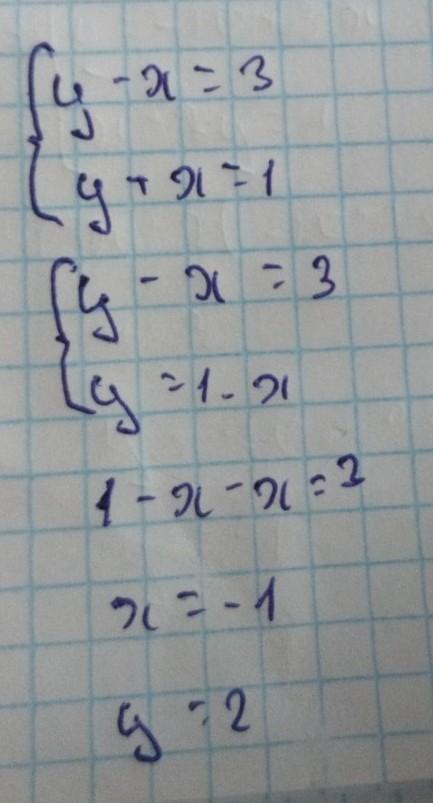 { y - x = 3
y + x = 1
{ y - x = 3
y = 1 - x
1 - x - x = 3
x = -1
y = 2